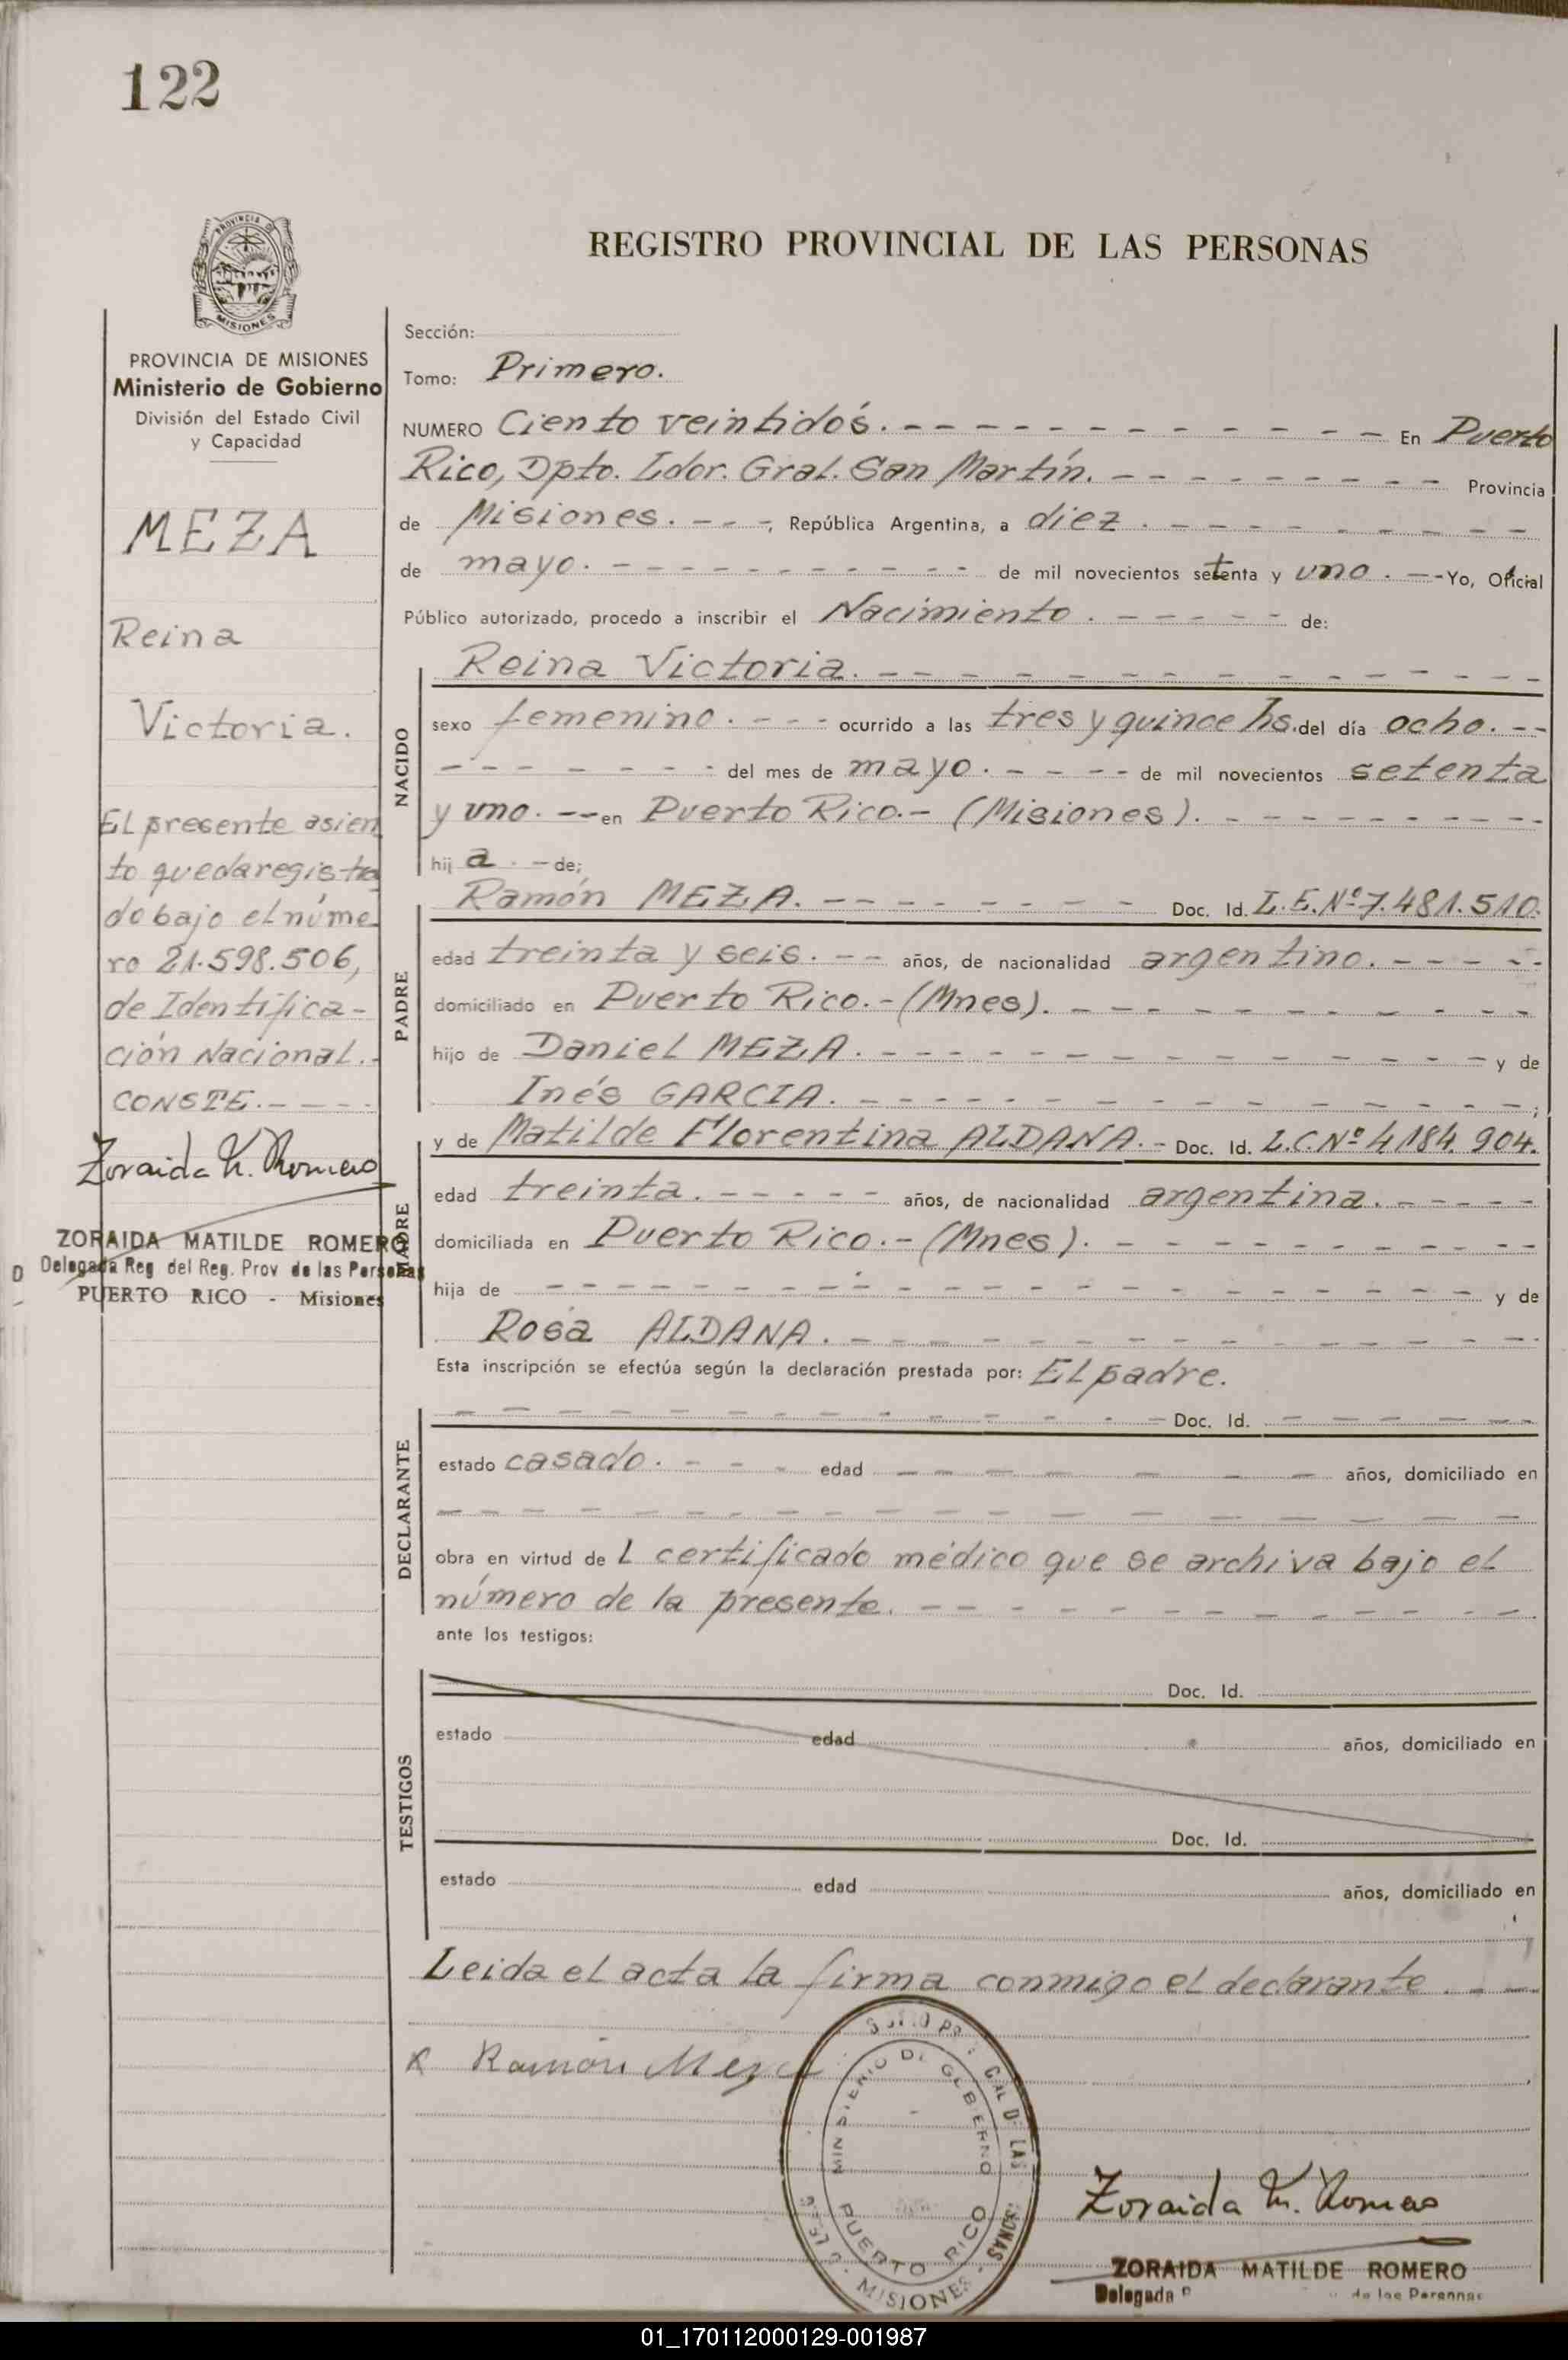 122
PROVINCIA DE
MISIONES
REGISTRO PROVINCIAL DE LAS PERSONAS
PROVINCIA DE MISIONES
Ministerio de Gobierno
División del Estado Civil
y Capacidad
MEZA
Reina
Victoria.
El presente asien
to queda registra
do bajo el núme
ro 21.598.506,
de Identifica-
ción Nacional.-
CONSTE.----
Zoraida M. Romero
ZORAIDA MATILDE ROMERO
Delegada Reg del Reg. Prov de las Personas
PUERTO RICO - Misiones
Sección:
Tomo: Primero.
NUMERO Ciento veintidós. - - - - En Puerto
Rico, Dpto. Ldor. Gral. San Martín. - - - - Provincia
de Misiones. - - -, República Argentina, a diez. - - - -
de mayo. - - - - de mil novecientos setenta y uno. - - Yo, Oficial
Público autorizado, procedo a inscribir el Nacimiento. - - - - de:
NACIDO
Reina Victoria. - - - -
sexo femenino. - - - ocurrido a las tres y quince hs. del día ocho. - -
- - - - del mes de mayo. - - - - de mil novecientos setenta
y uno. - - en Puerto Rico.- (Misiones). - - - -
hij a. - de;
PADRE
Ramón MEZA. - - - - Doc. Id. L.E.Nº 7.481.510.
edad treinta y seis. - - años, de nacionalidad argentino. - - - -
domiciliado en Puerto Rico.-(Mnes). - - - -
hijo de Daniel MEZA. - - - - y de
Inés GARCIA. - - - - ;
MADRE
y de Matilde Florentina ALDANA.- Doc. Id. L.C.Nº 4.184.904.
edad treinta. - - - - años, de nacionalidad argentina. - - - -
domiciliada en Puerto Rico.-(Mnes). - - - -
hija de - - - - y de
Rosa ALDANA. - - - -
Esta inscripción se efectúa según la declaración prestada por: El padre.
DECLARANTE
- - - - Doc. Id. - - - -
estado casado. - - - edad - - - - años, domiciliado en
- - - -
obra en virtud de l certificado médico que se archiva bajo el
número de la presente. - - - -
ante los testigos:
TESTIGOS
Doc. Id.
estado edad años, domiciliado en
Doc. Id.
estado edad años, domiciliado en
Leida el acta la firma conmigo el declarante. - -
x Ramón Meza
MINISTERIO DE GOBIERNO
PUERTO RICO
MISIONES
Zoraida M. Romero
ZORAIDA MATILDE ROMERO
Delegada de las Personas
01_170112000129-001987